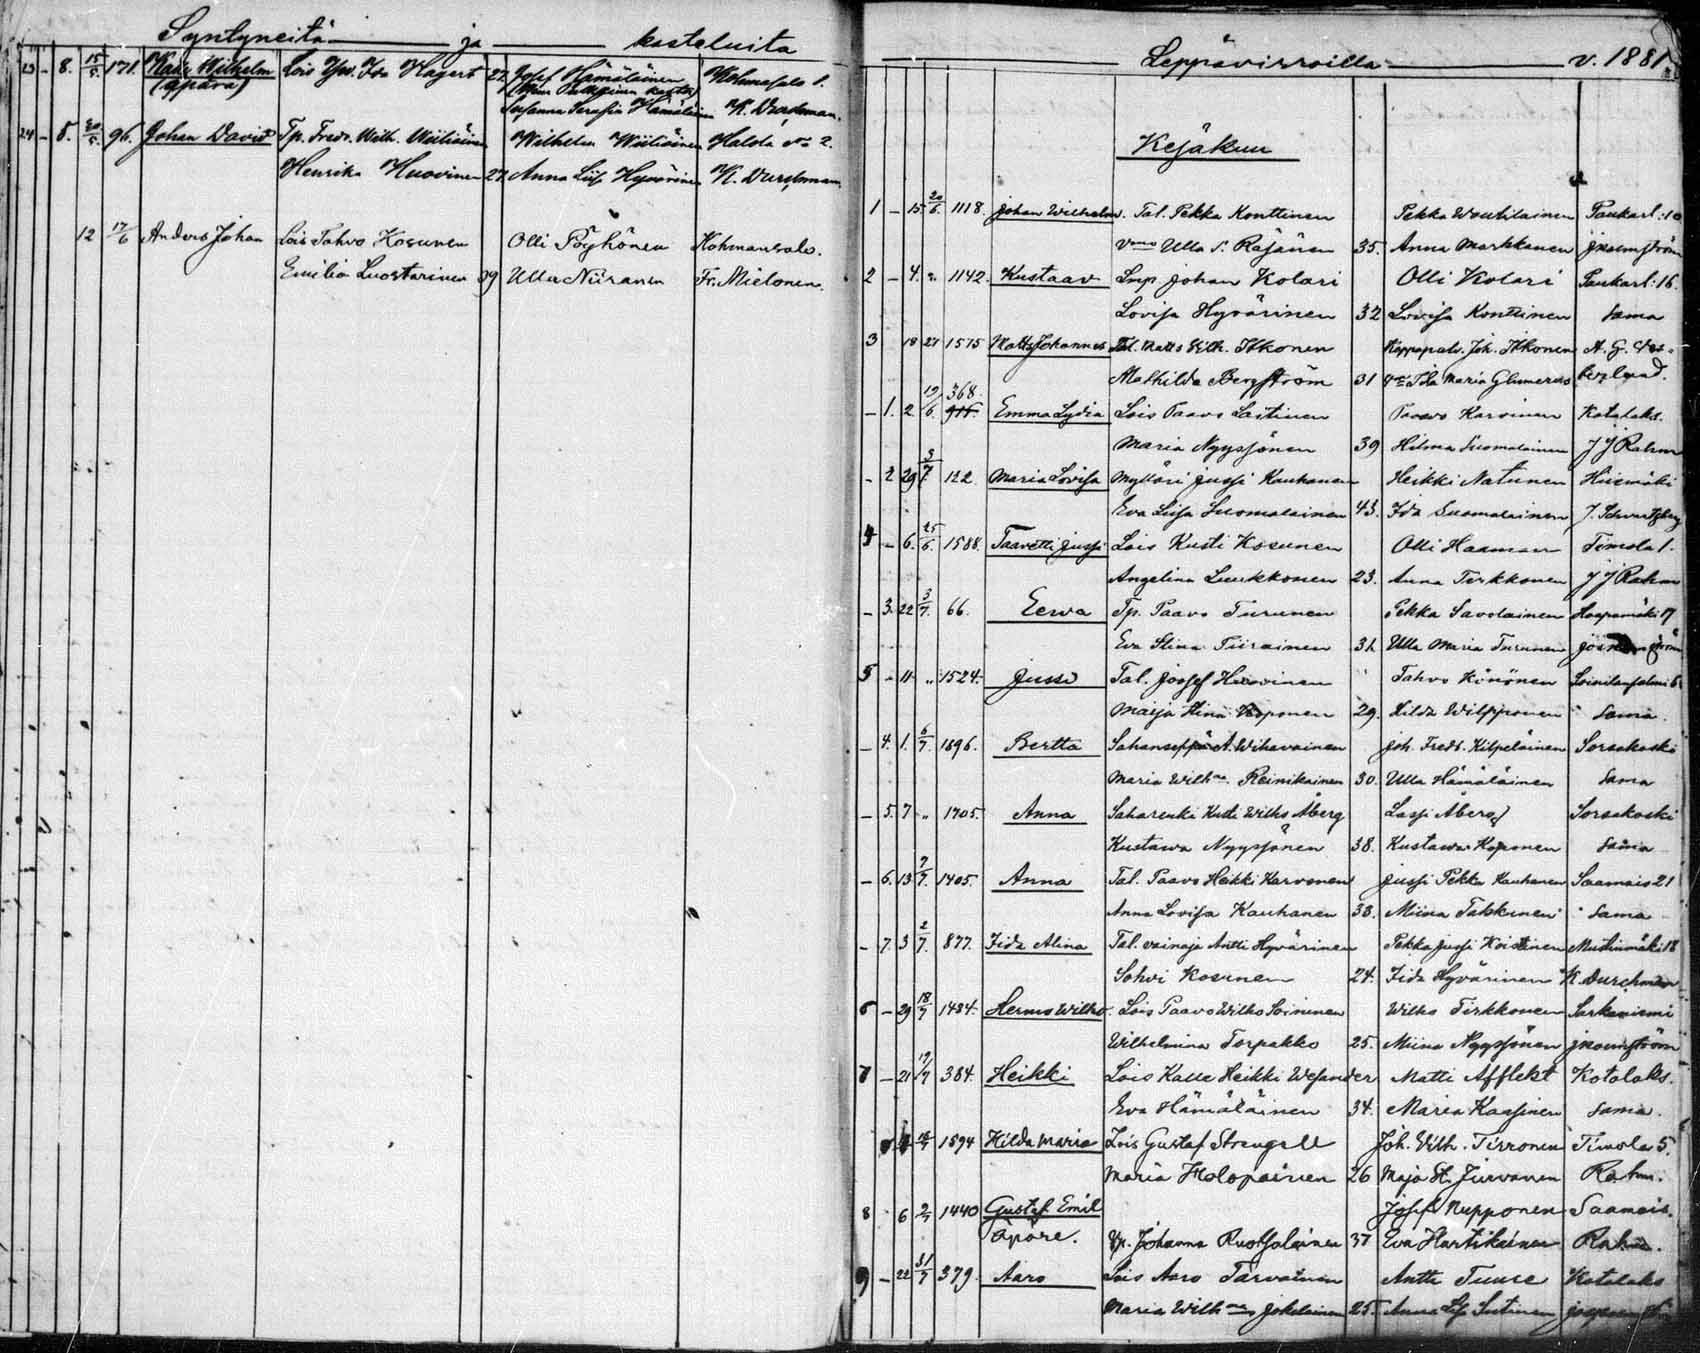 Syntyneitä ja kasteluita
23 - 8. 15/5 171. Kalle Wilhelm Lois Ida Hagert 22 Josef Hämäläinen Kohmansalo 1.
(äpärä) Susanna Serafia Hämäläinen K. Durchman.
24 - 8. 96. Johan David Tp. Fredr. Wilh. Wiiliäinen Wilhelm Wiiliäinen Halola No 2.
Henrika Huovinen 27 Anna Liisa Hyvärinen K. Durchman.
12 17/6 Anders Johan Lois Tahvo Kosunen Olli Pöyhönen Kohmansalo.
Emilia Luostarinen 39 Ulla Niiranen Fr. Mielonen.
Leppävirroilla v. 1881.
Kesäkuu
1 - 15. 20/6. 1118. Johan Wilhelm. Tal. Pekka Konttinen Pekka Woutilainen Paukarl: 10
Ulla S. Räsänen 35. Anna Markkanen
2 - 4. " 1142. Kustaav Lmp Johan Kolari Olli Kolari Paukarl: 16.
Lovisa Hyvärinen 32 Lovisa Konttinen Sama
3 18 21 1575 Matts Johannes Tal. Matts Vilh. Itkonen Kappapals. Joh. Itkonen A. G.
Mathilda Bergström 31 Ida Maria Glumerus
- 1. 2 19/6. 368. Emma Lydia Lois Paavo Laitinen Paavo Karvinen Kotalaks.
Maria Nyyssönen 39 Hilma Suomalainen J J Rahm
- 2 29 3/7. 122. Maria Lovisa Mylläri Jussi Kauhanen Heikki Natunen Hiismäki
Eva Liisa Suomalainen 43. Ida Suomalainen J. Schwartzberg
4 - 6. 25/6. 1588. Taavetti Jussi Lois Kusti Kosunen Olli Haaman Timola 1.
Angelina Luukkonen 23. Anna Tirkkonen J J Rahm
- 3. 22 3/7. 66. Eewa Tp. Paavo Turunen Pekka Savolainen Haapamäki 17
Eva Stina Tiirainen 31. Ulla Maria Turunen
5 - 11. " 1524. Jussi Tal. Josef Huovinen Tahvo Könönen Soinilansalmi 6
Maija Stina Koponen 29. Hilda Wilpponen Sama.
- 4. 1. 6/7. 1696. Bertta Sahanseppä A. Wihavainen Joh. Fredr. Kilpeläinen Sorsakoski
Maria Wilhna. Reinikainen 30. Ulla Hämäläinen Sama
- 5. 7 " 1705. Anna Saharenki Kusti Wilho Åberg Lassi Åberg Sorsakoski
Kustawa Nyyssönen 38. Kustawa Koponen Sama
- 6. 13 7/7. 1405. Anna Tal. Paavo Heikki Karvonen Jussi Pekka Kauhanen Saamais 21
Anna Lovisa Kauhanen 33. Miina Talskinen Sama
- 7. 3 2/7. 877. Iida Alina Tal. vainaja Antti Hyvärinen Pekka Jussi Koistinen Mustinmäki 18
Sohvi Kosunen 24. Iida Hyvärinen K. Durchman
6 - 29 18/7 1484. Hermo Wilho. Lois Paavo Wilho Soininen Wilho Tirkkonen Sarkaniemi
Wilhelmina Torpakko 25. Miina Nyyssönen
7 - 21 17/7 384. Heikki Lois Kalle Heikki Wesander Matti Afflekt Kotalaks.
Eva Hämäläinen 34. Maria Kaasinen Sama.
1594 Hilda Maria Lois Gustaf Strengell Joh. Vilh. Tirronen Timola 5.
Maria Holopainen 26 Maja St. Jurvanen Rahm.
8 6 2/7 1440 Gustaf Emil Josef Nupponen Saamais.
Äpäre. Yp. Johanna Ruotsalainen 37 Eva Hartikainen Rahm.
9 - 22 31/7 379. Aaro Lois Aaro Tarvainen Antti Tuure Kotalaks
Maria Wilhna Jokelainen 25.